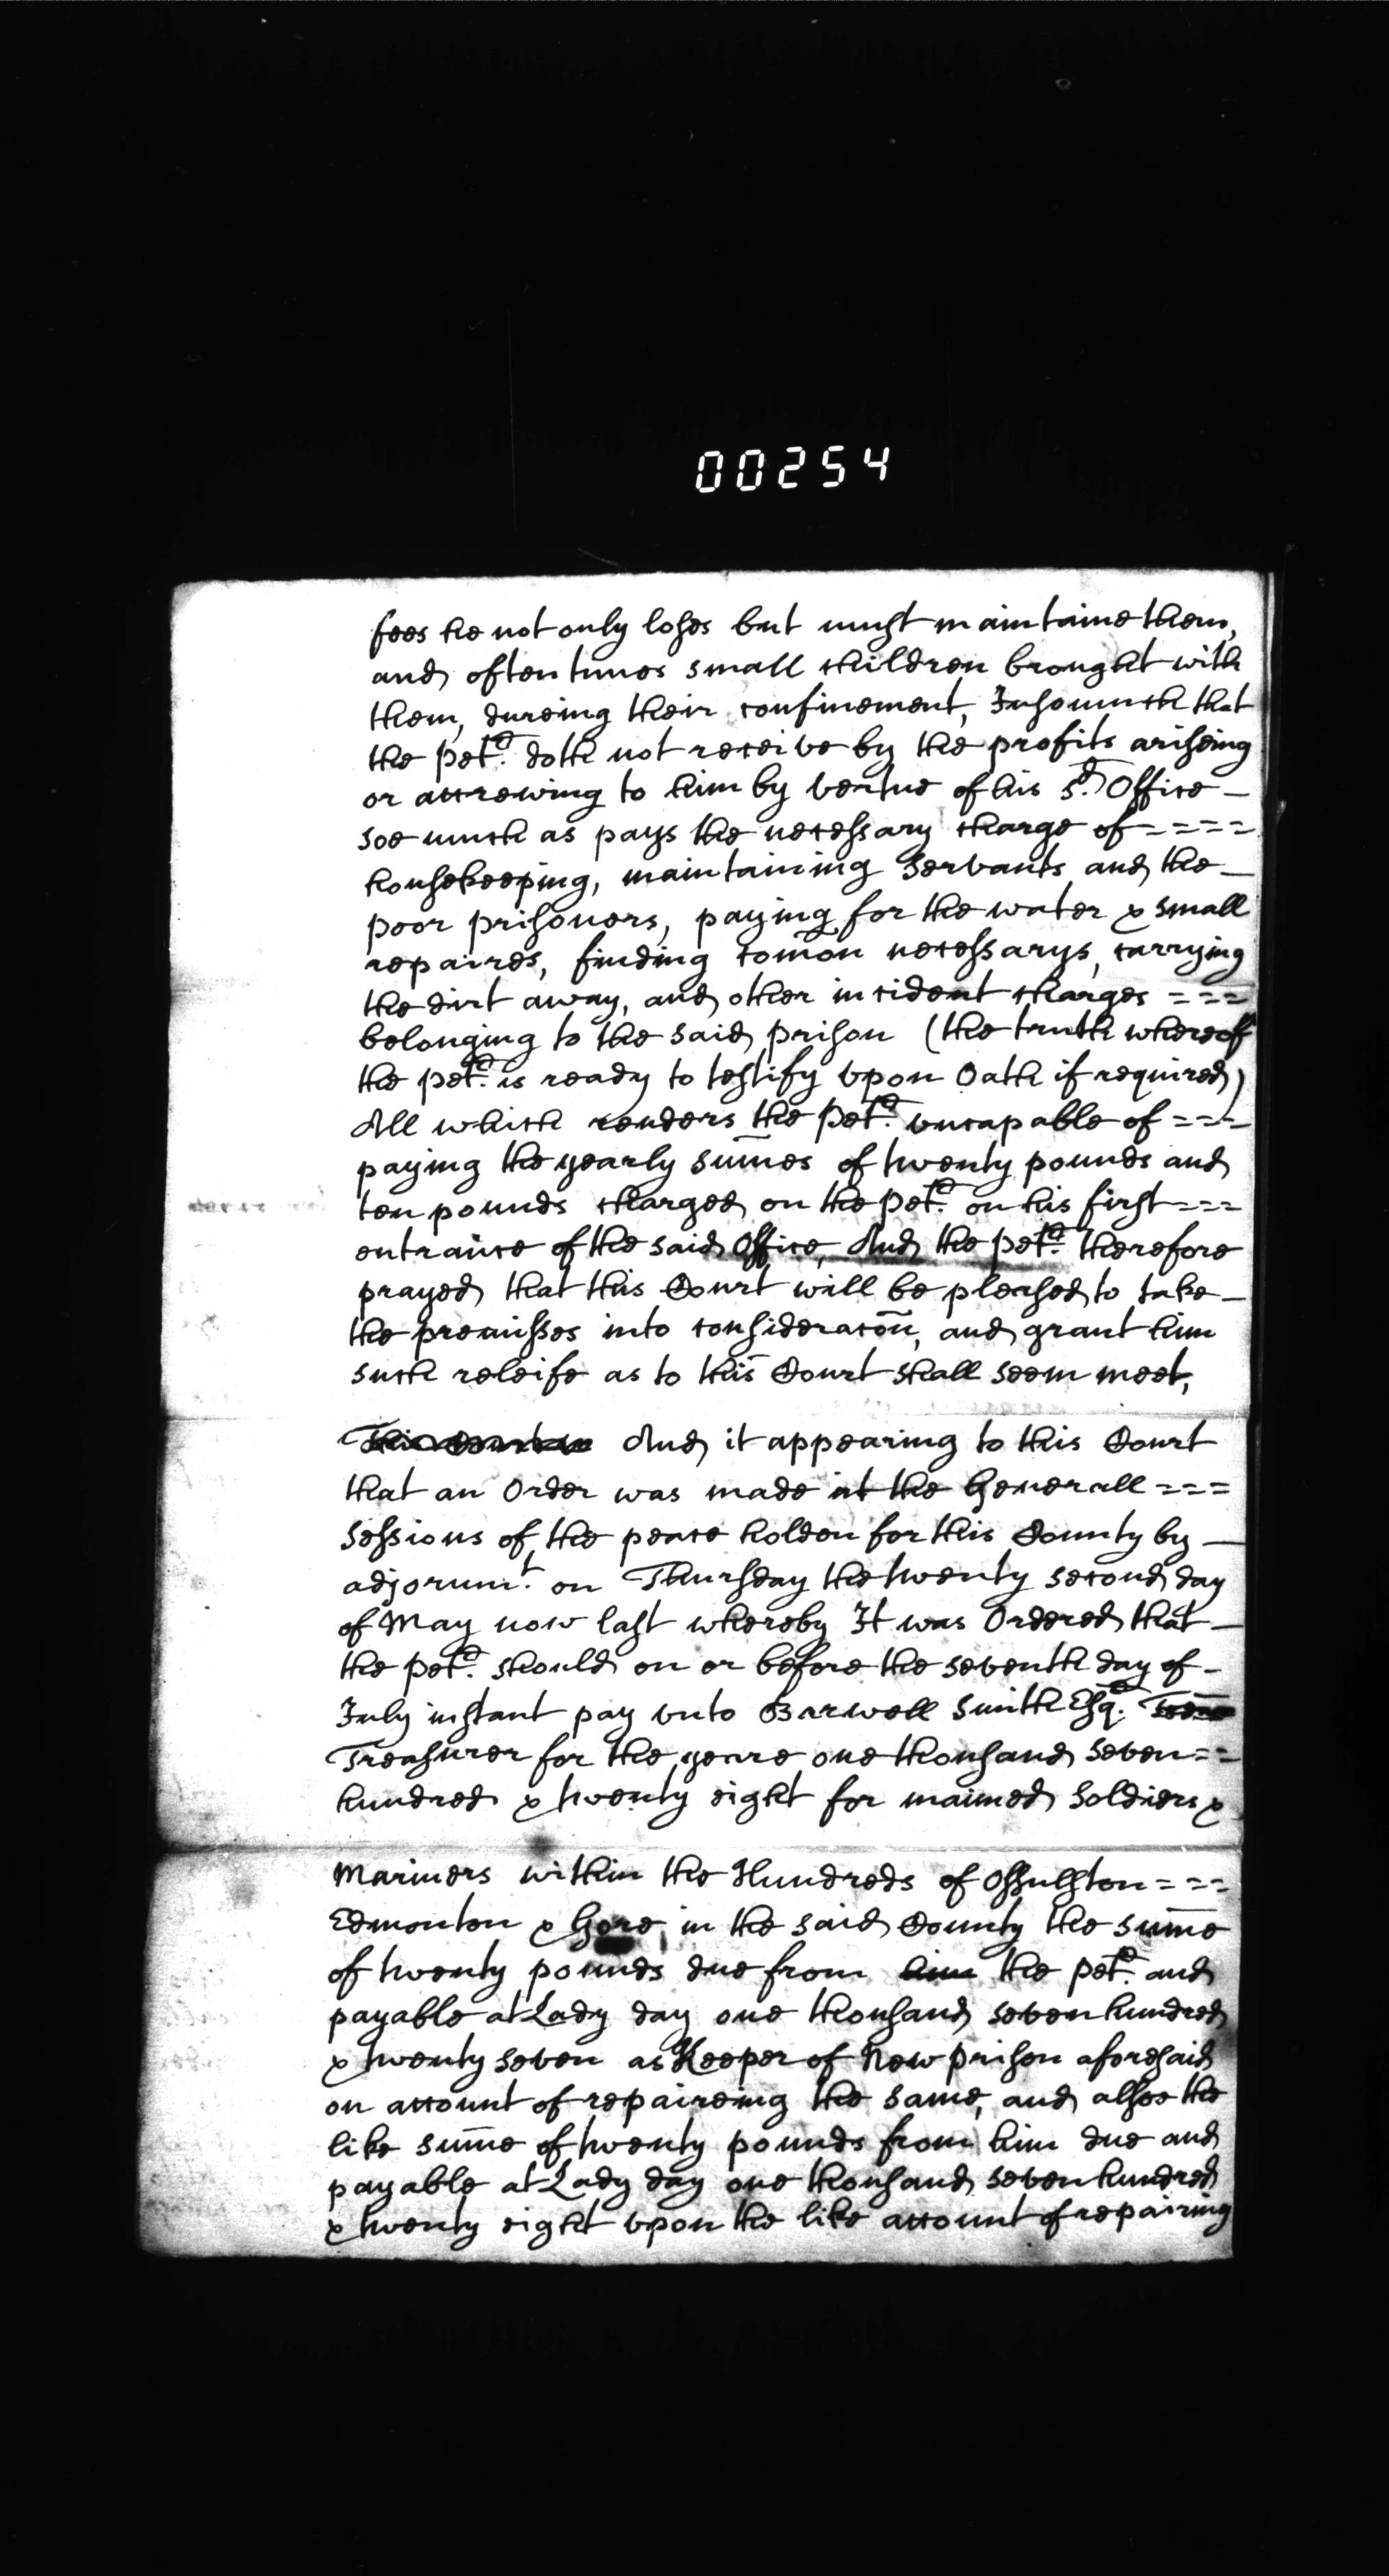 00254
fees he not only loses but must maintaine them,
and often times small children brought with
them, dureing their confinement, Insomuch that
the Petr. doth not receive by the profits ariseing
or accrewing to him by vertue of his sd. Office -
soe much as pays the necessary charge of = = = =
housekeeping, maintaining Servants and the -
poor prisoners, paying for the water & small
repaires, finding com̄on necessarys, carrying
the dirt away, and other incident charges = = =
belonging to the said prison (the truth whereof
the petr. is ready to testify upon Oath if required)
All which renders the Petr. uncapable of = = =
paying the yearly sum̄es of twenty pounds and
ten pounds charged on the Petr. on his first = = =
entrance of the said Office, And the Petr. therefore
prayed that this Court will be pleased to take -
the premisses into consideracōn, and grant him
such releife as to this Court shall seem meet,
This Court And it appearing to this Court
that an Order was made at the Generall = = =
Sessions of the peace holden for this County by -
adjorumt. on Thursday the twenty second day
of May now last whereby It was Ordered that -
the Petr. should on or before the seventh day of -
July instant pay unto Barwell Smith Esqr.
Treasurer for the yeare one thousand seven = =
hundred & twenty eight for maimed Soldiers &
Mariners within the Hundreds of Ossulston = = =
Edmonton & Gore in the said County the sum̄e
of twenty pounds due from him the petr. and
payable at Lady day one thousand seven hundred
& twenty seven as Keeper of New prison aforesaid
on account of repaireing the same, and alsoe the
like sum̄e of twenty pounds from him due and
payable at Lady day one thousand seven hundred
& twenty eight upon the like account of repairing